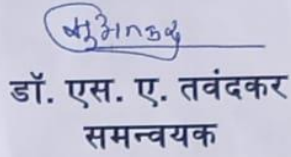 डॉ. एस. ए. तवंदकर
समन्वयक